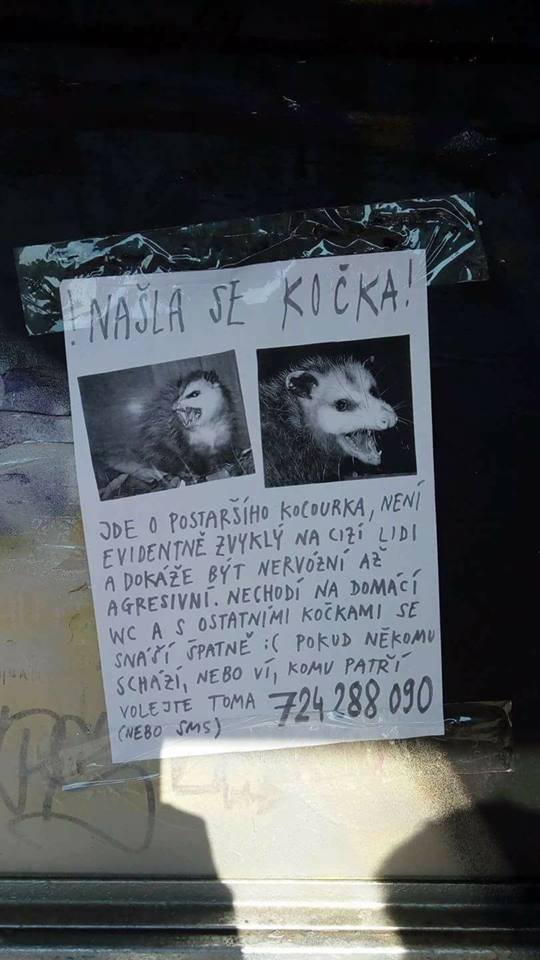 ! NAŠLA SE KOČKA!
JDE O POSTARŠÍHO KOCOURKA, NENÍ
EVIDENTNĚ ZVYKLÝ NA CIZÍ LIDI
A DOKÁŽE BÝT NERVÓZNÍ AŽ
AGRESIVNÍ. NECHODÍ NA DOMÁCÍ
WC A S OSTATNÍMI KOČKAMI SE
SNÁŠÍ ŠPATNĚ :( POKUD NĚKOMU
SCHÁZÍ, NEBO VÍ, KOMU PATŘÍ
VOLEJTE TOMA 724 288 090
(NEBO SMS)